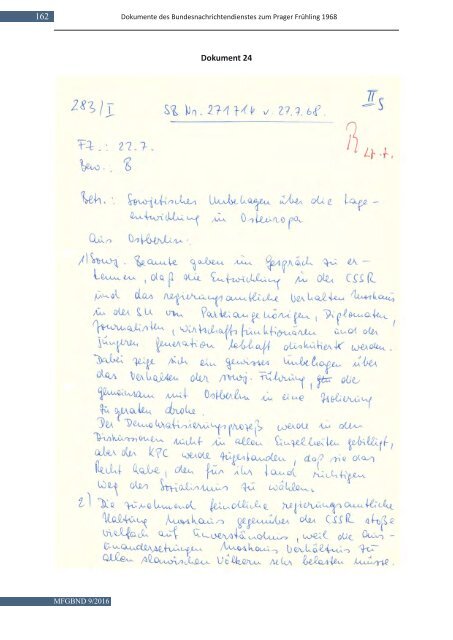 162
Dokumente des Bundesnachrichtendienstes zum Prager Frühling 1968
Dokument 24
283/I
SB Nr. 271714 v. 27.7.68.
II S
FZ.: 22.7.
Bew.: B
Betr.: Sowjetisches Unbehagen über die Lage-
entwicklung in Osteuropa
Aus Ostberlin:
1) Sowj. Beamte gaben im Gespräch zu er-
kennen, daß die Entwicklung in der CSSR
und das regierungsamtliche Verhalten Moskaus
in der SU von Parteiangehörigen, Diplomaten,
Journalisten, Wirtschaftsfunktionären und der
jüngeren Generation lebhaft diskutiert werden.
Dabei zeige sich ein gewisses Unbehagen über
das Verhalten der sowj. Führung, die
gemeinsam mit Ostberlin in eine Isolierung
zu geraten drohe.
Der Demokratisierungsprozeß werde in den
Diskussionen nicht in allen Einzelheiten gebilligt,
aber der KPC werde zugestanden, daß sie das
Recht habe, den für ihr Land richtigen
Weg des Sozialismus zu wählen.
2) Die zunehmend feindliche regierungsamtliche
Haltung Moskaus gegenüber der CSSR stoße
vielfach auf Unverständnis, weil die Aus-
einandersetzungen Moskaus Verhältnis zu
allen slawischen Völkern sehr belasten müsse.
MFGBND 9/2016